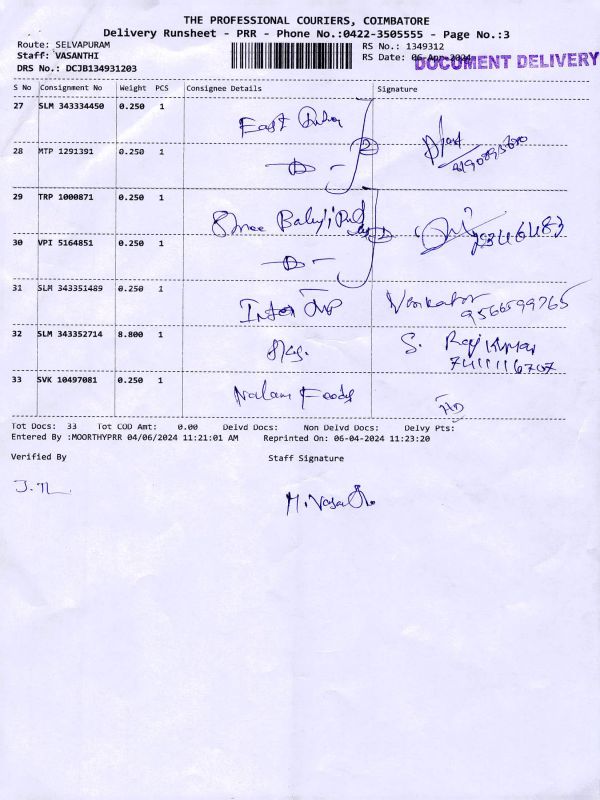 THE PROFESSIONAL COURIERS, COIMBATORE
Delivery Runsheet - PRR - Phone No.:0422-3505555 - Page No.:3
Route: SELVAPURAM RS No.: 1349312
Staff: VASANTHI RS Date: 06-Apr-2024
DOCUMENT DELIVERY
DRS No.: DCJB134931203
S No Consignment No Weight PCS Consignee Details Signature
27 SLM 343334450 0.250 1 East
28 MTP 1291391 0.250 1
29 TRP 1000871 0.250 1 Shree Balaji
30 VPI 5164851 0.250 1
31 SLM 343351489 0.250 1 Venkatesh
9566599765
32 SLM 343352714 8.800 1 S. Raj Kumar
7411116707
33 SVK 10497081 0.250 1 Nalam Foods
Tot Docs: 33 Tot COD Amt: 0.00 Delvd Docs: Non Delvd Docs: Delvy Pts:
Entered By :MOORTHYPRR 04/06/2024 11:21:01 AM Reprinted On: 06-04-2024 11:23:20
Verified By Staff Signature